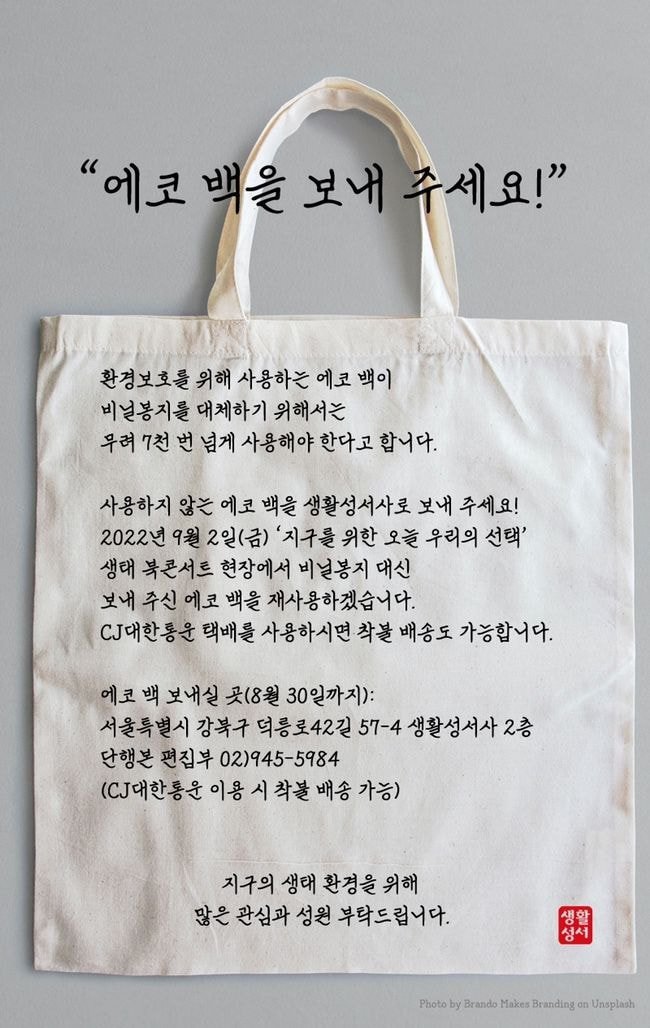 “에코 백을 보내 주세요!”
환경보호를 위해 사용하는 에코 백이
비닐봉지를 대체하기 위해서는
무려 7천 번 넘게 사용해야 한다고 합니다.
사용하지 않는 에코 백을 생활성서사로 보내 주세요!
2022년 9월 2일(금) ‘지구를 위한 오늘 우리의 선택’
생태 북콘서트 현장에서 비닐봉지 대신
보내 주신 에코 백을 재사용하겠습니다.
CJ대한통운 택배를 사용하시면 착불 배송도 가능합니다.
에코 백 보내실 곳(8월 30일까지):
서울특별시 강북구 덕릉로42길 57-4 생활성서사 2층
단행본 편집부 02)945-5984
(CJ대한통운 이용 시 착불 배송 가능)
지구의 생태 환경을 위해
많은 관심과 성원 부탁드립니다.
생활
성서
Photo by Brando Makes Branding on Unsplash